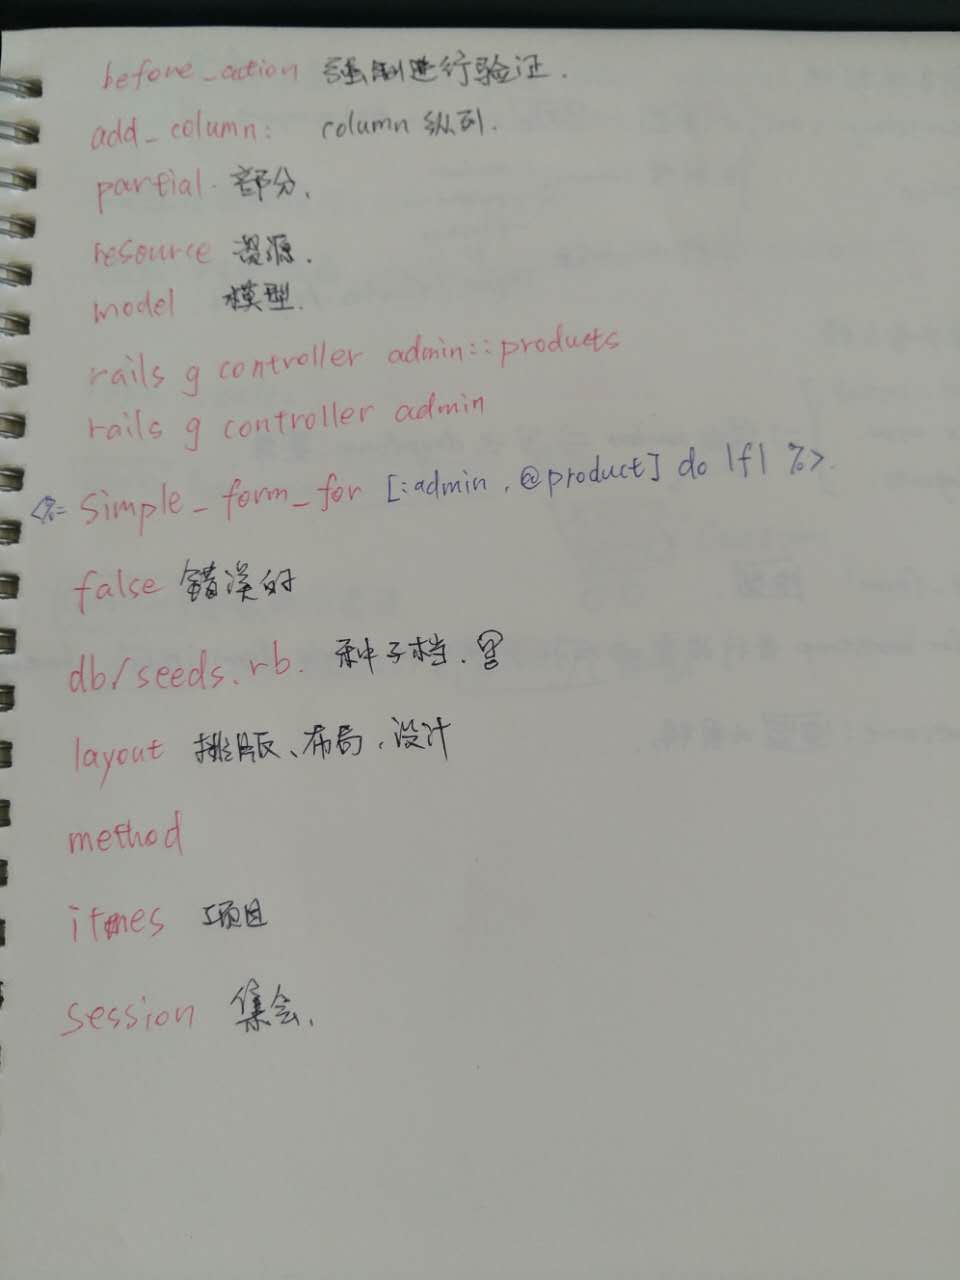 before_action 强制进行验证.
add_column: column 纵列.
partial. 部分.
resource 资源.
model 模型.
rails g controller admin::products
rails g controller admin
<%= simple_form_for [:admin, @product] do |f| %>.
false 错误的
db/seeds.rb. 种子档.
layout 排版、布局,设计
method
itmes 项目
session 集会.